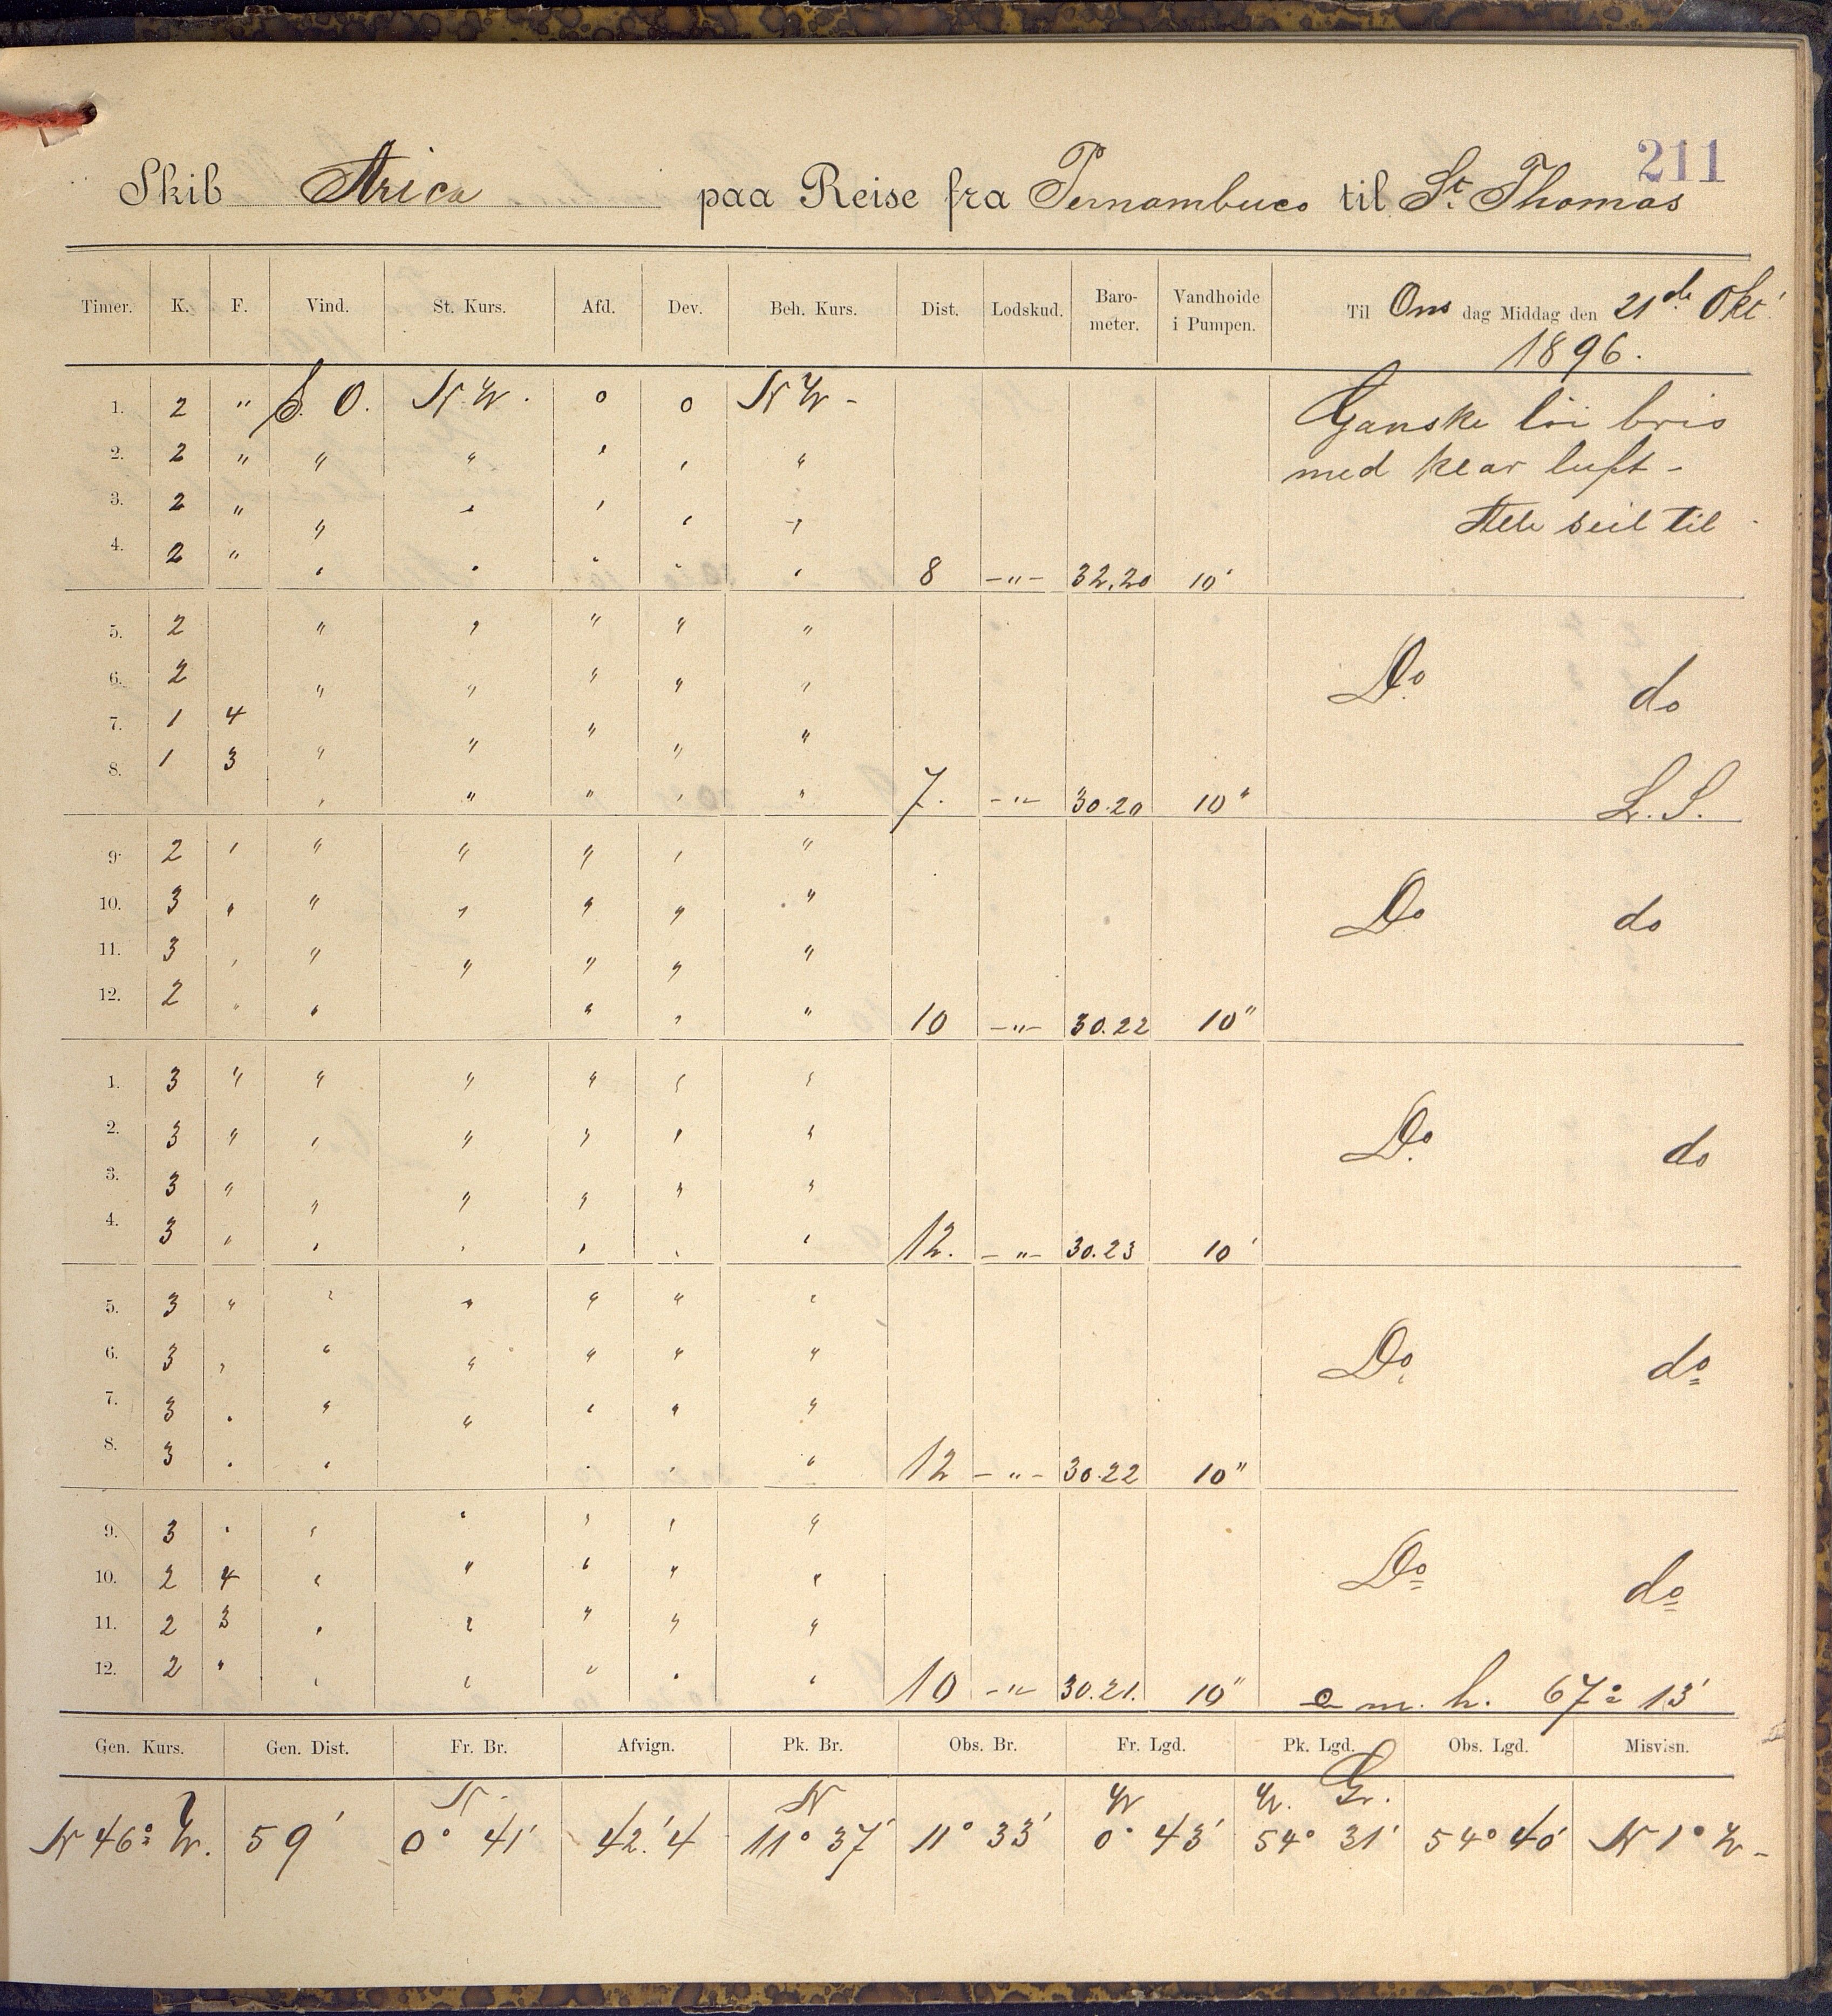 211
Skib Arica paa Reise fra Pernambuco til St. Thomas
Timer. K. F. Vind. St. Kurs. Afd. Dev. Beh. Kurs. Dist. Lodskud. Baro-meter. Vandhoide i Pumpen. Til Ons dag Middag den 21de Okt.
1896.
1. 2 " S. O. N W. 0 0 N W - Ganske løi bris
2. 2 " " " " " " med klar luft -
3. 2 " " " " " " Alle seil til
4. 2 " " " " " " 8 -"- 32.20 10"
5. 2 " " " " "
6. 2 " " " " " Do do
7. 1 4 " " " " "
8. 1 3 " " " " " 7. -"- 30.20 10" L. S.
9. 2 " " " " " "
10. 3 " " " " " " Do do
11. 3 " " " " " "
12. 2 " " " " " 10 -"- 30.22 10"
1. 3 " " " " " "
2. 3 " " " " " " Do do
3. 3 " " " " " "
4. 3 " " " " " " 12. -"- 30.23 10"
5. 3 " " " " " "
6. 3 " " " " " " Do do
7. 3 " " " " " "
8. 3 " " " " " 12 -"- 30.22 10"
9. 3 " " " " " "
10. 2 4 " " " " " Do do
11. 2 3 " " " " "
12. 2 " " " " " " 10 -"- 30.21. 10" m. h. 67° 13'
Gen. Kurs. Gen. Dist. Fr. Br. Afvign. Pk. Br. Obs. Br. Fr. Lgd. Pk. Lgd. Obs. Lgd. Misvisn.
N. N W W. Gr.
N 46° W. 59' 0° 41' 42.'4 11° 37' 11° 33' 0° 43' 54° 31' 54° 40' N 1° W -